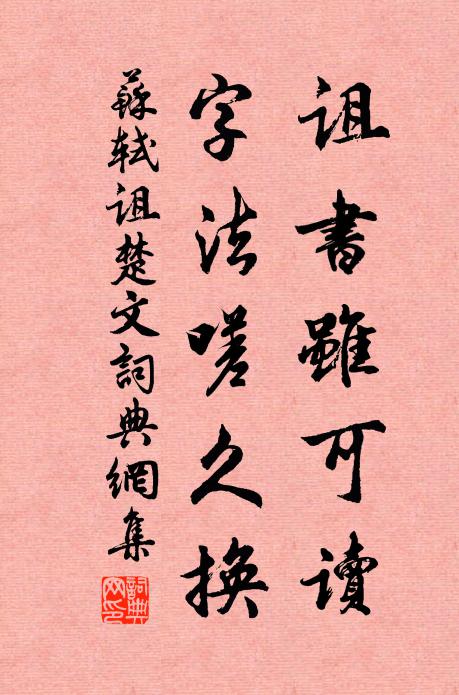 詛書雖可讀
字法嗟久換
蘇軾詛楚文詞典網集
詞典網印